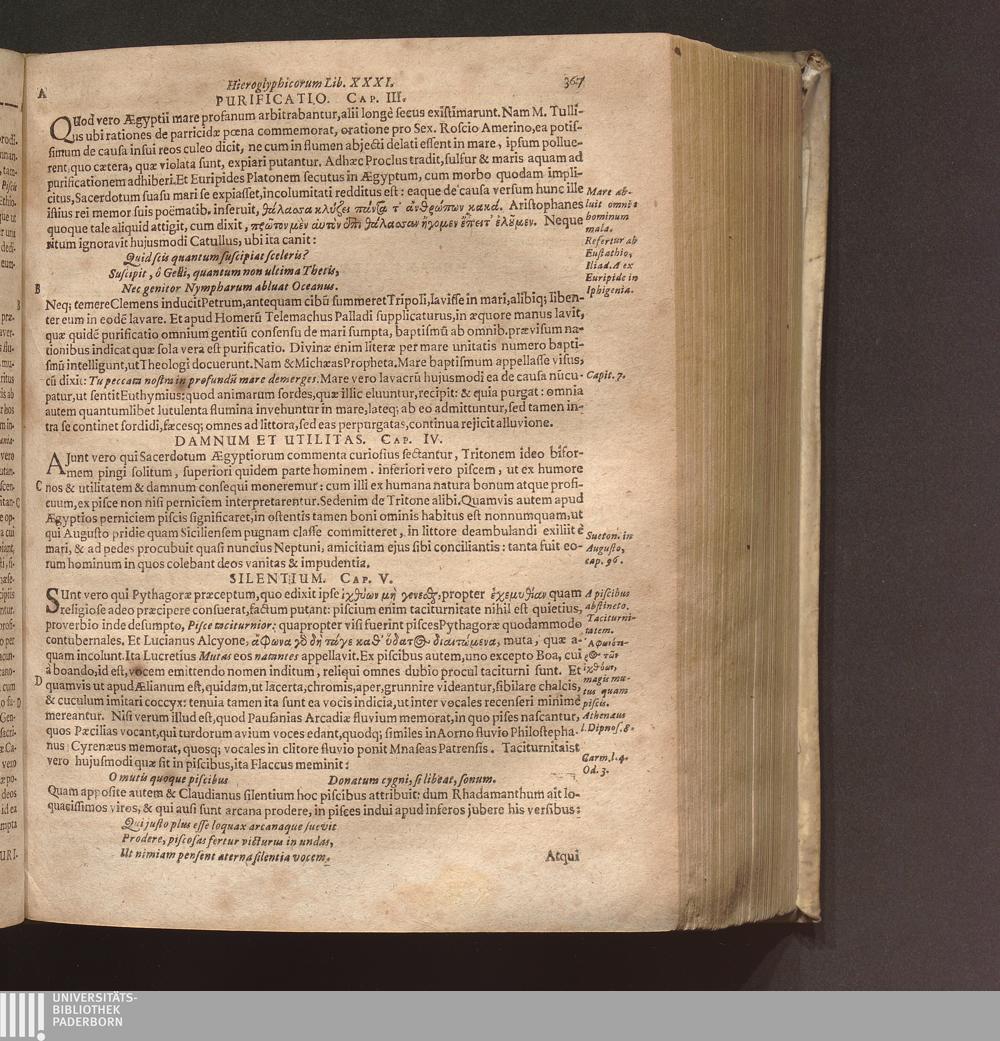 Hieroglyphicorum Lib. XXXI. 367
A
PURIFICATIO. CAP. III.
QUod vero Ægyptii mare profanum arbitrabantur, alii longè secus existimarunt. Nam M. Tulli-
us ubi rationes de parricidæ pœna commemorat, oratione pro Sex. Roscio Amerino, ea potis-
simum de causa insui reos culeo dicit, ne cum in flumen abjecti delati essent in mare, ipsum pollue-
rent, quo cætera, quæ violata sunt, expiari putantur. Adhæc Proclus tradit, sulfur & maris aquam ad
purificationem adhiberi. Et Euripides Platonem secutus in Ægyptum, cum morbo quodam impli-
citus, Sacerdotum suasu mari se expiasset, incolumitati redditus est: eaque de causa versum hunc ille
istius rei memor suis poëmatib. inseruit, θάλασσα κλύζει πάντα τ' ἀνθρώπων κακά. Aristophanes
quoque tale aliquid attigit, cum dixit, πρῶτον μὲν αὐτὸν ἐπὶ θάλασσαν ἤγομεν ἔπειτ' ἐλοῦμεν. Neque
ritum ignoravit hujusmodi Catullus, ubi ita canit:
Quid scis quantum suscipiat sceleris?
Suscipit, ô Gelli, quantum non ultima Thetis,
Nec genitor Nympharum abluat Oceanus.
Mare ab-
luit omnes
hominum
mala.
Refertur ab
Eustathio,
Iliad. A ex
Euripide in
Iphigenia.
B
Neq; temere Clemens inducit Petrum, antequam cibũ summeret Tripoli, lavisse in mari, alibiq; liben-
ter eum in eodẽ lavare. Et apud Homerũ Telemachus Palladi supplicaturus, in æquore manus lavit,
quæ quidẽ purificatio omnium gentiũ consensu de mari sumpta, baptismũ ab omnib. prævisum na-
tionibus indicat quæ sola vera est purificatio. Divinæ enim literæ per mare unitatis numero bapti-
smũ intelligunt, ut Theologi docuerunt. Nam & Michæas Propheta. Mare baptismum appellasse visus,
cũ dixit: Tu peccata nostra in profundũ mare demerges. Mare vero lavacrũ hujusmodi ea de causa nũcu-
patur, ut sentit Euthymius: quod animarum sordes, quæ illic eluuntur, recipit: & quia purgat: omnia
autem quantumlibet lutulenta flumina invehuntur in mare, lateq; ab eo admittuntur, sed tamen in-
tra se continet sordidi, fæcesq; omnes ad littora, sed eas perpurgatas, continua rejicit alluvione.
Capit. 7.
DAMNUM ET UTILITAS. CAP. IV.
AJunt vero qui Sacerdotum Ægyptiorum commenta curiosius sectantur, Tritonem ideo bifor-
mem pingi solitum, superiori quidem parte hominem. inferiori vero piscem, ut ex humore
C
nos & utilitatem & damnum consequi moneremur: cum illi ex humana natura bonum atque profi-
cuum, ex pisce non nisi perniciem interpretarentur. Sed enim de Tritone alibi. Quamvis autem apud
Ægyptios perniciem piscis significaret, in ostentis tamen boni ominis habitus est nonnumquam, ut
qui Augusto pridie quam Siciliensem pugnam classe committeret, in littore deambulandi exiliit è
mari, & ad pedes procubuit quasi nuncius Neptuni, amicitiam ejus sibi conciliantis: tanta fuit eo-
rum hominum in quos colebant deos vanitas & impudentia.
Sueton. in
Augusto,
cap. 96.
SILENTIUM. CAP. V.
SUnt vero qui Pythagoræ præceptum, quo edixit ipse ἰχθύων μὴ γενεσθαι, propter ἐχεμυθίαν quam
religiose adeo præcipere consuerat, factum putant: piscium enim taciturnitate nihil est quietius,
proverbio inde desumpto, Pisce taciturnior: quapropter visi fuerint pisces Pythagoræ quodammodo
contubernales. Et Lucianus Alcyone, ἄφωνα γὸ δὴ τάγε καθ' ὕδατος διαιτώμενα, muta, quæ a-
quam incolunt. Ita Lucretius Mutas eos natantes appellavit. Ex piscibus autem, uno excepto Boa, cui
à boando, id est, vocem emittendo nomen inditum, reliqui omnes dubio procul taciturni sunt. Et
D
quamvis ut apud Ælianum est, quidam, ut lacerta, chromis, aper, grunnire videantur, sibilare chalcis,
& cuculum imitari coccyx: tenuia tamen ita sunt ea vocis indicia, ut inter vocales recenseri minimè
mereantur. Nisi verum illud est, quod Pausanias Arcadiæ fluvium memorat, in quo pises nascantur,
quos Pæcilias vocant, qui turdorum avium voces edant, quodq; similes in Aorno fluvio Philostepha-
nus Cyrenæus memorat, quosq; vocales in clitore fluvio ponit Mnaseas Patrensis. Taciturnitatis
vero hujusmodi quæ sit in piscibus, ita Flaccus meminit:
O mutis quoque piscibus Donatum cygni, si libeat, sonum.
Quam apposite autem & Claudianus silentium hoc piscibus attribuit: dum Rhadamanthum ait lo-
quacissimos viros, & qui ausi sunt arcana prodere, in pisces indui apud inferos jubere his versibus:
Qui justo plus esse loquax arcanaque suevit
Prodere, piscosas fertur victurus in undas,
Ut nimiam pensent aterna silentia vocem.
A piscibus
abstineto.
Taciturni-
tatem.
magis mu-
tus quam
piscis.
Athenæus
l. Dipnos. 8.
Carm. l. 4.
Od. 3.
Atqui
UNIVERSITÄTS-
BIBLIOTHEK
PADERBORN